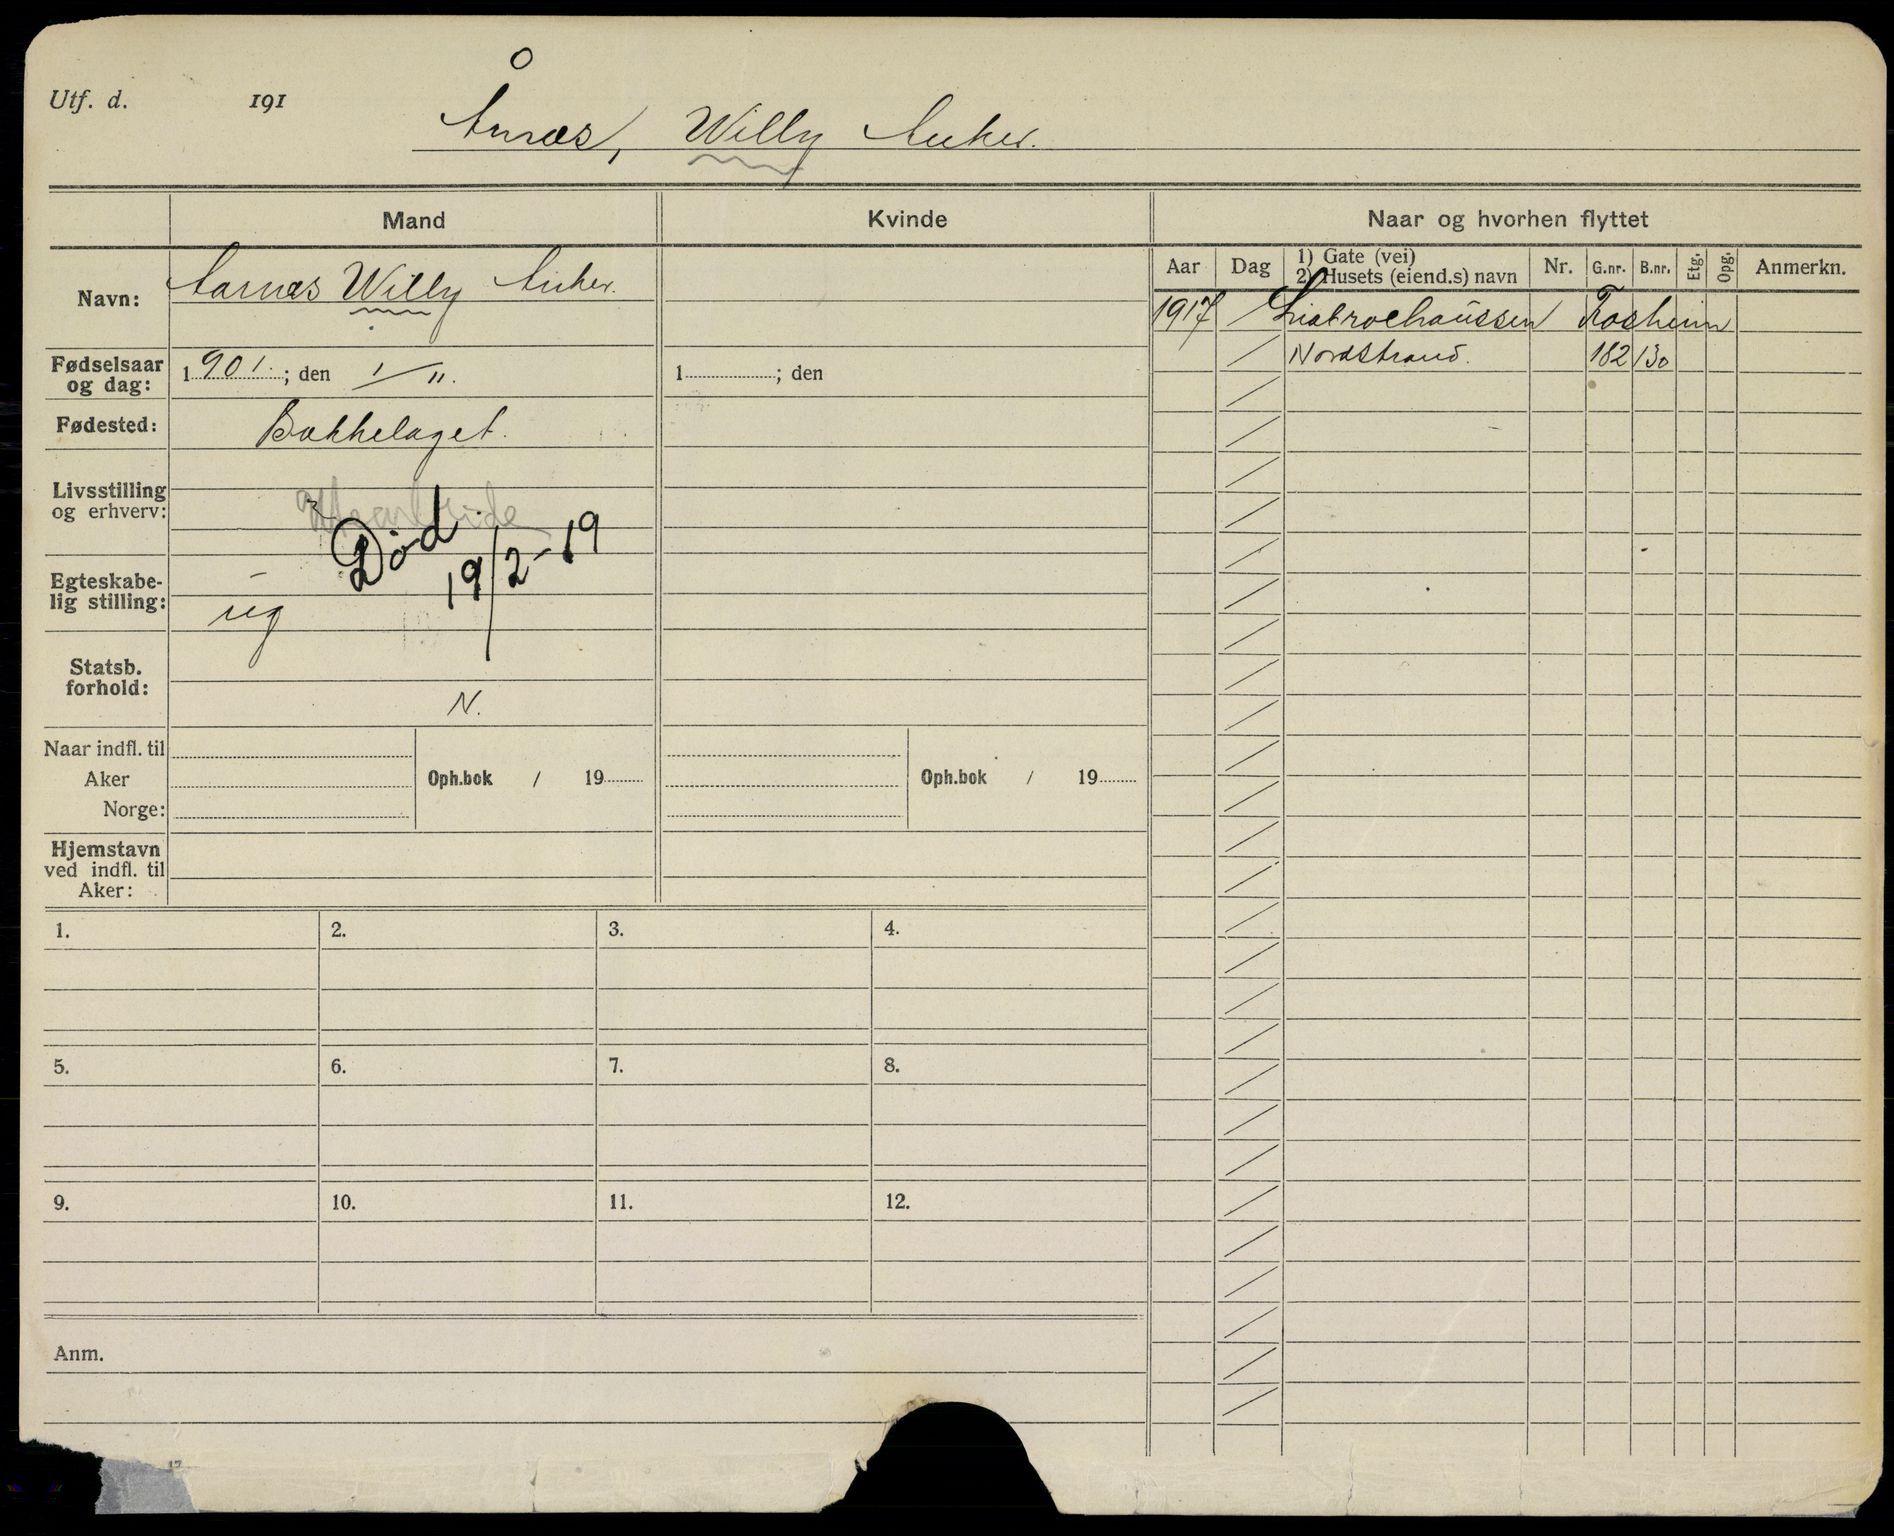 Utf. d. 191
Årnæs, Willy Anker.
Mand Kvinde Naar og hvorhen flyttet
Navn: Aarnæs Willy Anker.
Fødselsaar og dag: 1901.; den 1/11. 1; den
Fødested: Bækkelaget.
Livsstilling og erhverv:
Død 19/2-19
Egteskabelig stilling: ug
Statsb. forhold: N.
Naar indfl. til
Aker
Norge:
Oph.bok / 19 Oph.bok / 19
Hjemstavn
ved indfl. til
Aker:
1. 2. 3. 4.
5. 6. 7. 8.
9. 10. 11. 12.
Anm.
17
Aar Dag 1) Gate (vei) 2) Husets (eiend.s) navn Nr. G.nr. B.nr. Etg. Opg. Anmerkn.
1917 / Liabrochausseen
/ Nordstrand. 182 130